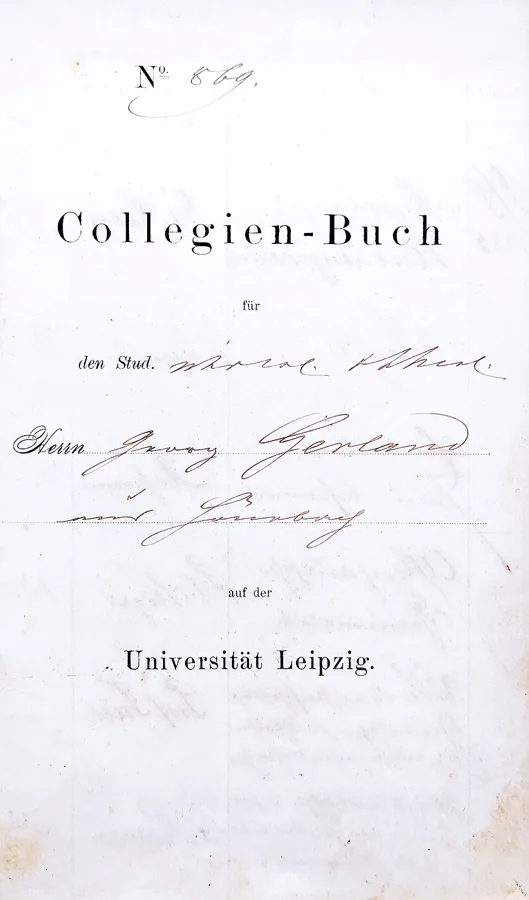 No. 869.
Collegien-Buch
für
den Stud.
Herrn Georg Gerland
aus
auf der
Universität Leipzig.